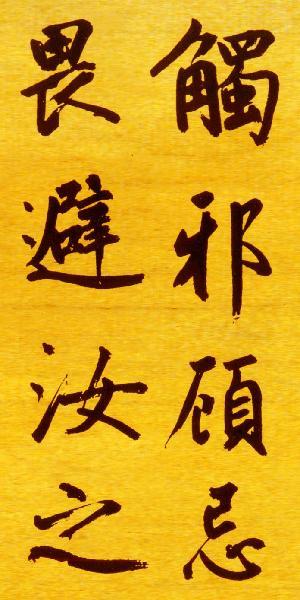 觸邪顧忌
畏避汝之